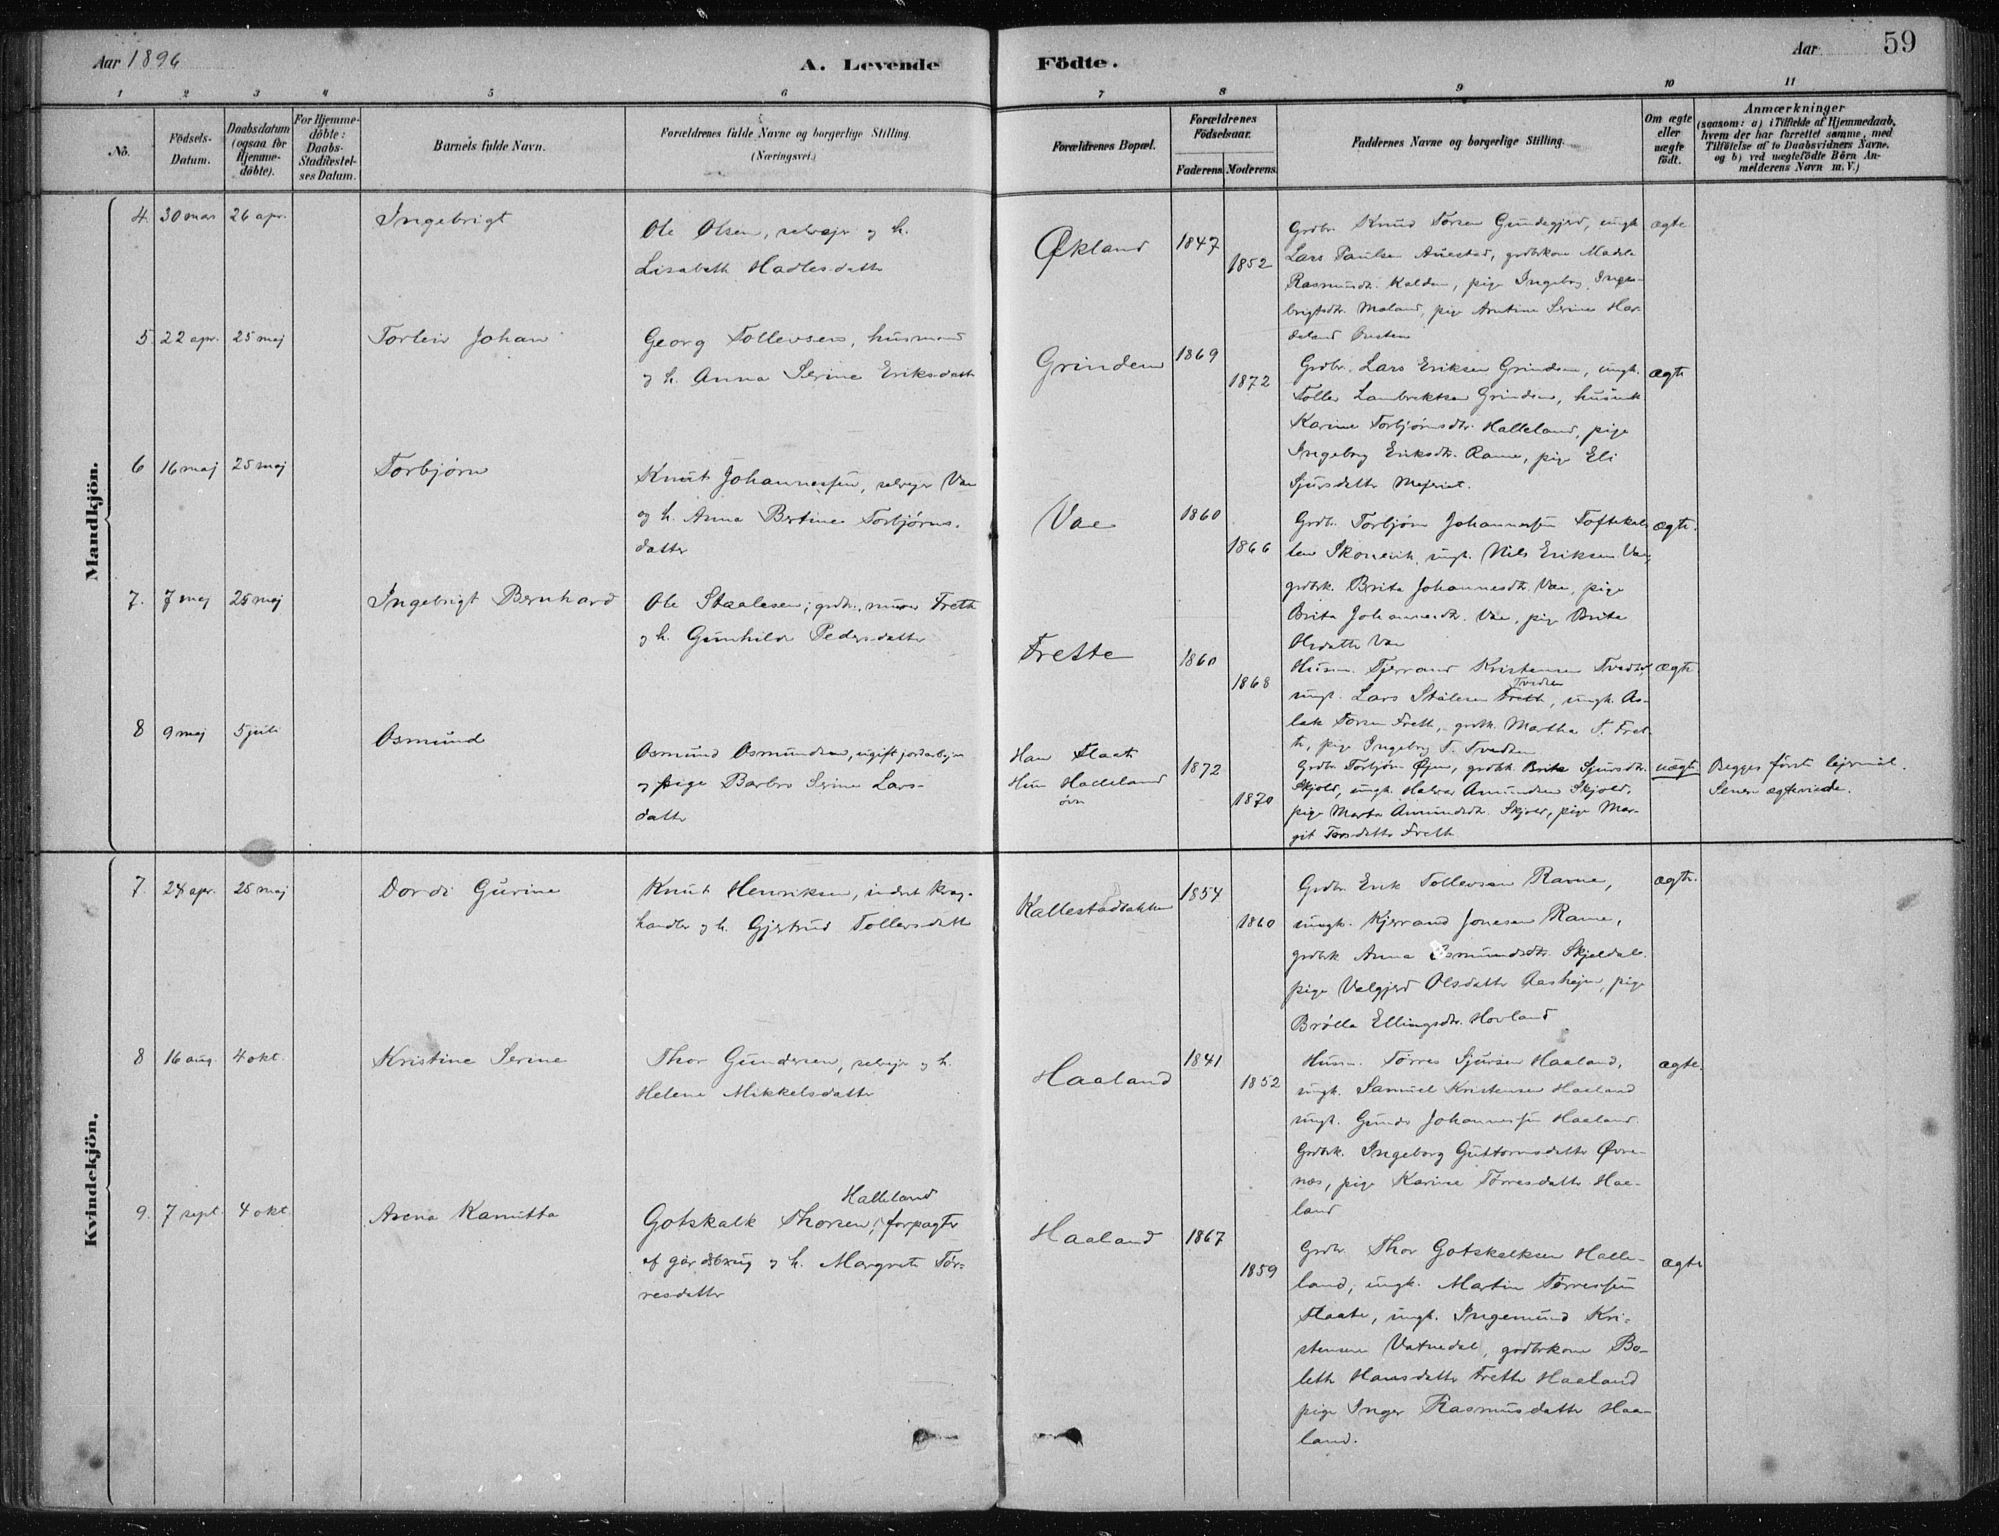 Aar 1896
A. Levende
Födte.
Aar
59
1 2 3 4 5 6 7 8 9 10 11
No.
Födsels-
Datum.
Daabsdatum
(ogsaa for
Hjemme-
döbte).
For Hjemme-
döbte:
Daabs-
Stadfæstel-
ses Datum.
Barnets fulde Navn.
Forældrenes fulde Navne og borgerlige Stilling.
(Næringsvei.)
Forældrenes Bopæl.
Forældrenes
Födselsaar.
Faderens.
Moderens.
Faddernes Navne og borgerlige Stilling.
Om ægte
eller
uægte
födt.
Anmærkninger
(saasom: a) i Tilfælde af Hjemmedaab,
hvem der har forrettet samme, med
Tilföielse af to Daabsvidners Navne.
og b) ved uægtefödte Börn An-
melderens Navn m. V.)
Mandkjön.
4. 30 mars 26 apr.
Ingebrigt
Ole Olsen, selvejr og h.
Lisabeth Hadlesdatter
Økland
1847
1852
Grdbr. Knud Torsen Gundegjerd, ungk.
Lars Paulsen Auestad, grdbrkone Madele
Rasmusdtr. Kalden, pige Ingeborg Inge-
brigtsdtr. Moland, pige Serine Hav-
ægte
5. 22 apr. 25 maj
Torleiv Johan
Georg Tollevsen, husmand
og h. Anna Serine Eriksdatter
Grinden
1869
1872
Grdbr. Lars Eriksen Grinden, ungk.
Tollev Lambrektsen Grinden,
Karine Torbjørnsdtr. Halleland, pige
Ingeborg Eriksdtr. Ramne, pige Eli
Sjursdatter
ægte
6 16 maj 25 maj
Torbjørn
Knut Johannessen, selvejer Vae
og h. Anna Bertine Torbjørns-
datter
Vae
1860
1866
Grdb. Torbjørn Johannessen
Skonevik, ungk. Nils Eriksen Vae,
grdbrk. Brita Johannesdtr. Vae, pige
Brita Johannesdtr. Vae, pige Brita
Olsdatter Vae
ægte.
7. 7 maj 25 maj
Ingebrigt Bernhard
Ole Staalesen, grdbr., murer Frette
og h. Gunhilde Pedersdatter
Frette
1860
1868
Husm. Tjerrand Kristensen Tvedten,
Tvedten
ungk. Lars Stålesen Frette, ungk. As-
lak Torsen Frette, Martha T. Fret-
te, pige Ingeborg T. Tvedten
ægte.
8 9 maj 5 juli
Osmund
Osmund Osmundsen, ugift jordarbejder
og pige Barbro Serine Lars-
datter
Han Flaate
Hun Halleland
øvr.
1872
1870
Grdbr. Torbjørn Øjen, grdbk. Brita Sjursdtr.
Skjold, ungk. Halvor Amundsen Skjold,
pige Marta Amundsdtr. Skjold, pige Mar-
git Torsdatter Frette
uægte
Begges først lejermål.
Senere ægteviede.
Kvindekjön.
7. 24 apr. 25 maj
Dordi Gurine
Knut Henriksen, kræ-
handler og h. Gjertrud Tollevsdatter
Kallestadbakken
1854
1860
Grdbr. Erik Tollevsen Ramne,
ungk. Kjerrand Jonesen Ramne,
grdbrk Anna Osmundsdtr. Skjeldal.
pige Valgjerd Olsdatter Aashejm, pige
Brølla Ellingsdtr. Hovland
ægte.
8 16 aug. 4 okt.
Kristine Serine
Thor Gundersen, selvejr og h.
Helene Mikkelsdatter
Haaland
1841
1852
Husm. Tørres Sjursen Haaland,
ungk. Samuel Kristensen Haaland
ungk. Gunde Johannessen Haaland.
Grdbrk. Ingeborg Guttormsdatter Øvre-
næs, pige Karine Tørresdatter Haa-
land
ægte.
9. 7 sept. 4 okt.
Asena Kamitta
Halleland
Gotskalk Thorsen, forpagter
af gårdsbrug og h. Margrete Tør-
resdatter
Haaland
1867
1859
Grdbr. Thor Gotskalksen Halle-
land, ungk. Martin Tørressen
Flaate, ungk. Ingemund Kri-
stensen Vatnedal, grdbrkone Bo-
lette Hansdatter Frette Haaland
pige Inger Rasmusdatter Haa-
land.
ægte